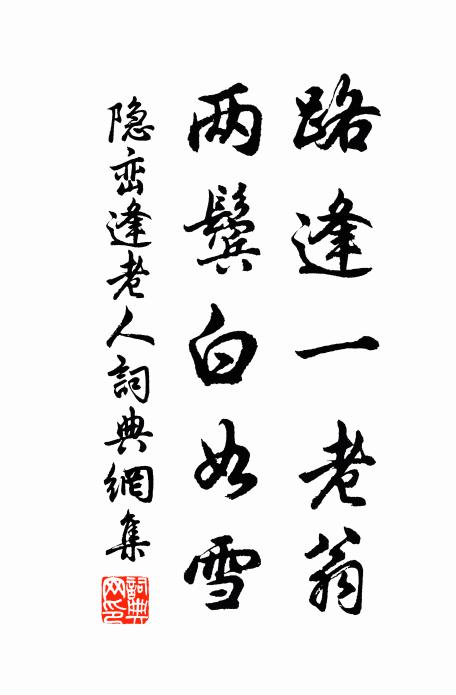 路逢一老翁
两鬓白如雪
隐峦逢老人詞典網集
詞典网印